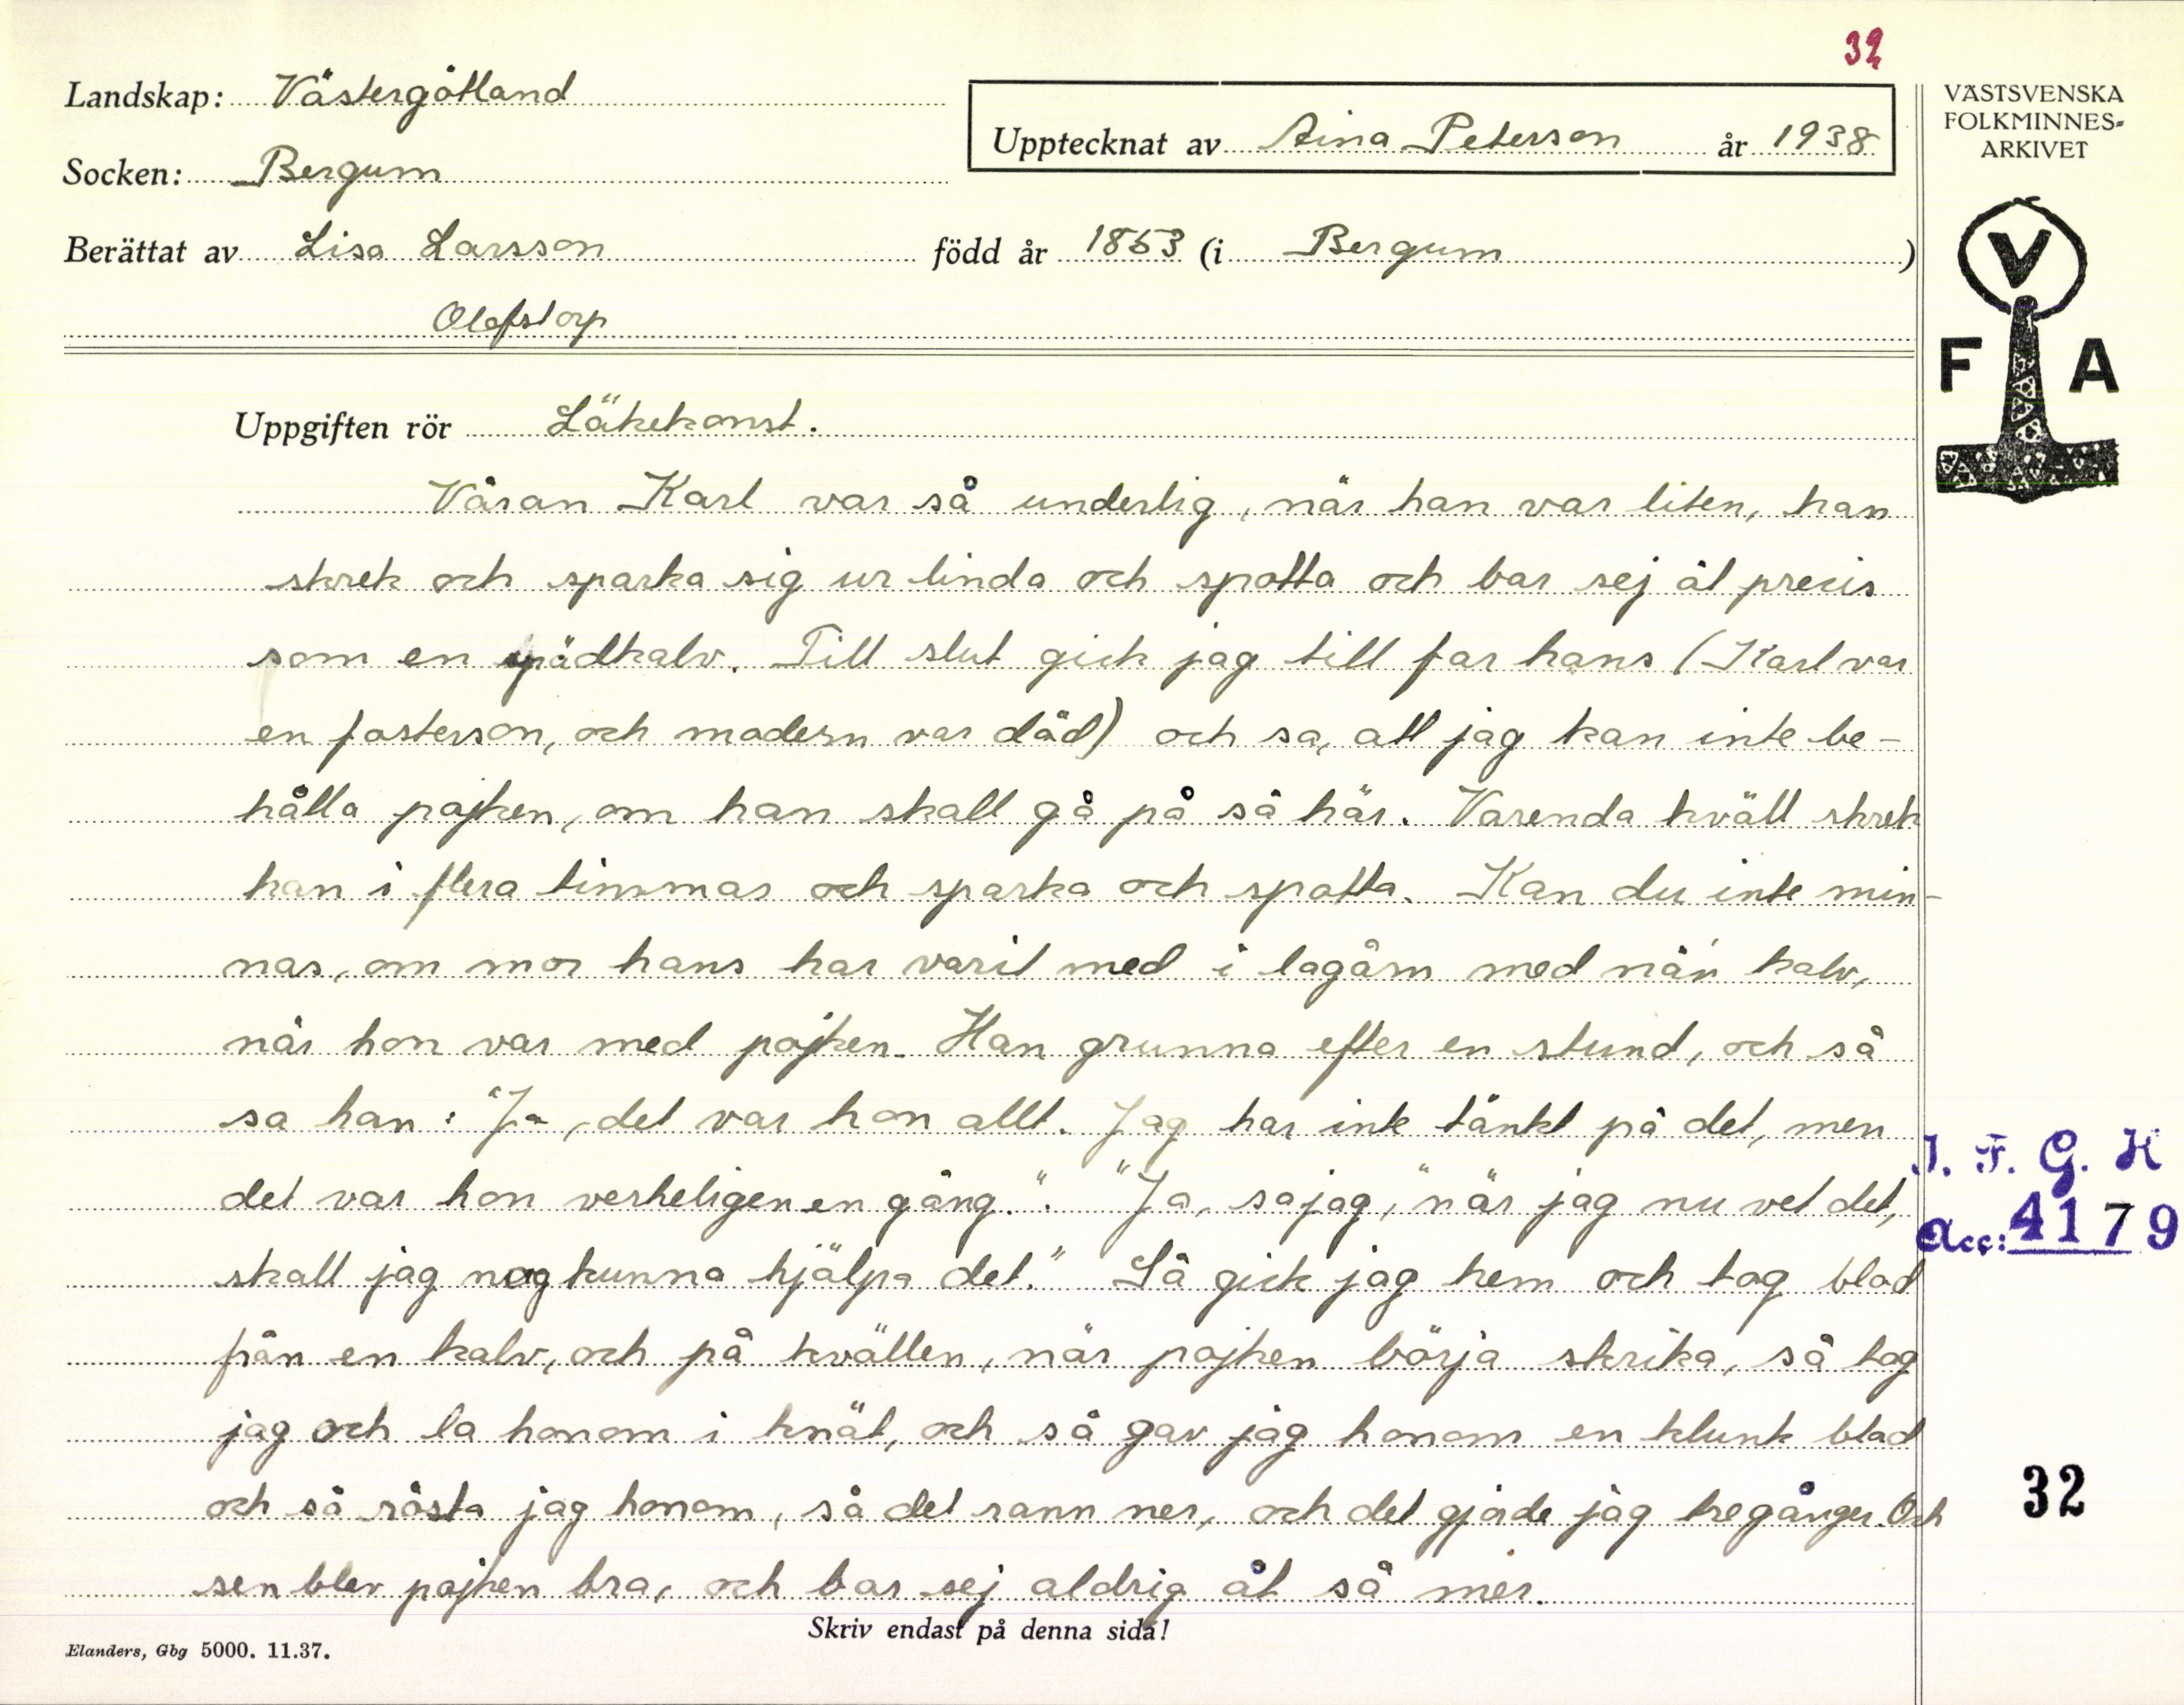 32
Landskap: Västergötland
Upptecknat av Aina Peterson år 1938
VÄSTSVENSKA
FOLKMINNES-
ARKIVET
Socken: Bergum
Berättat av Lisa Larsson född år 1853 (i Bergum)
Olofstorp
V
F A
Uppgiften rör Läkekonst.
Våran Karl var så underlig, när han var liten, han
skrek och sparka sig ur linda och spotta och bar sej åt precis
som en spädkalv. Till slut gick jag till far hans (Karl var
en fosterson, och modern var död) och sa, att jag kan inte be-
hålla pojken, om han skall gå på så här. Varenda kväll skrek
han i flera timmar och sparka och spotta. Kan du inte min-
nas, om mor hans har varit med i lagårn med nån kalv,
när hon var med pojken. Han grunna efter en stund, och så
sa han: "Ja, det var hon allt. Jag har inte tänkt på det, men
det var hon verkeligen en gång.". "Ja, sa jag, "när jag nu vet det,
skall jag nog kunna hjälpa det." Så gick jag hem och tog blod
från en kalv, och på kvällen, när pojken börja skrika, så tog
jag och la honom i knät, och så gav jag honom en klunk blod
och så rösta jag honom, så det rann ner, och det gjorde jag tre gånger. Och
sen blev pojken bra, och bar sej aldrig åt så mer.
I. F. G. H
Acc: 4179
32
Skriv endast på denna sida!
Elanders, Gbg 5000. 11.37.